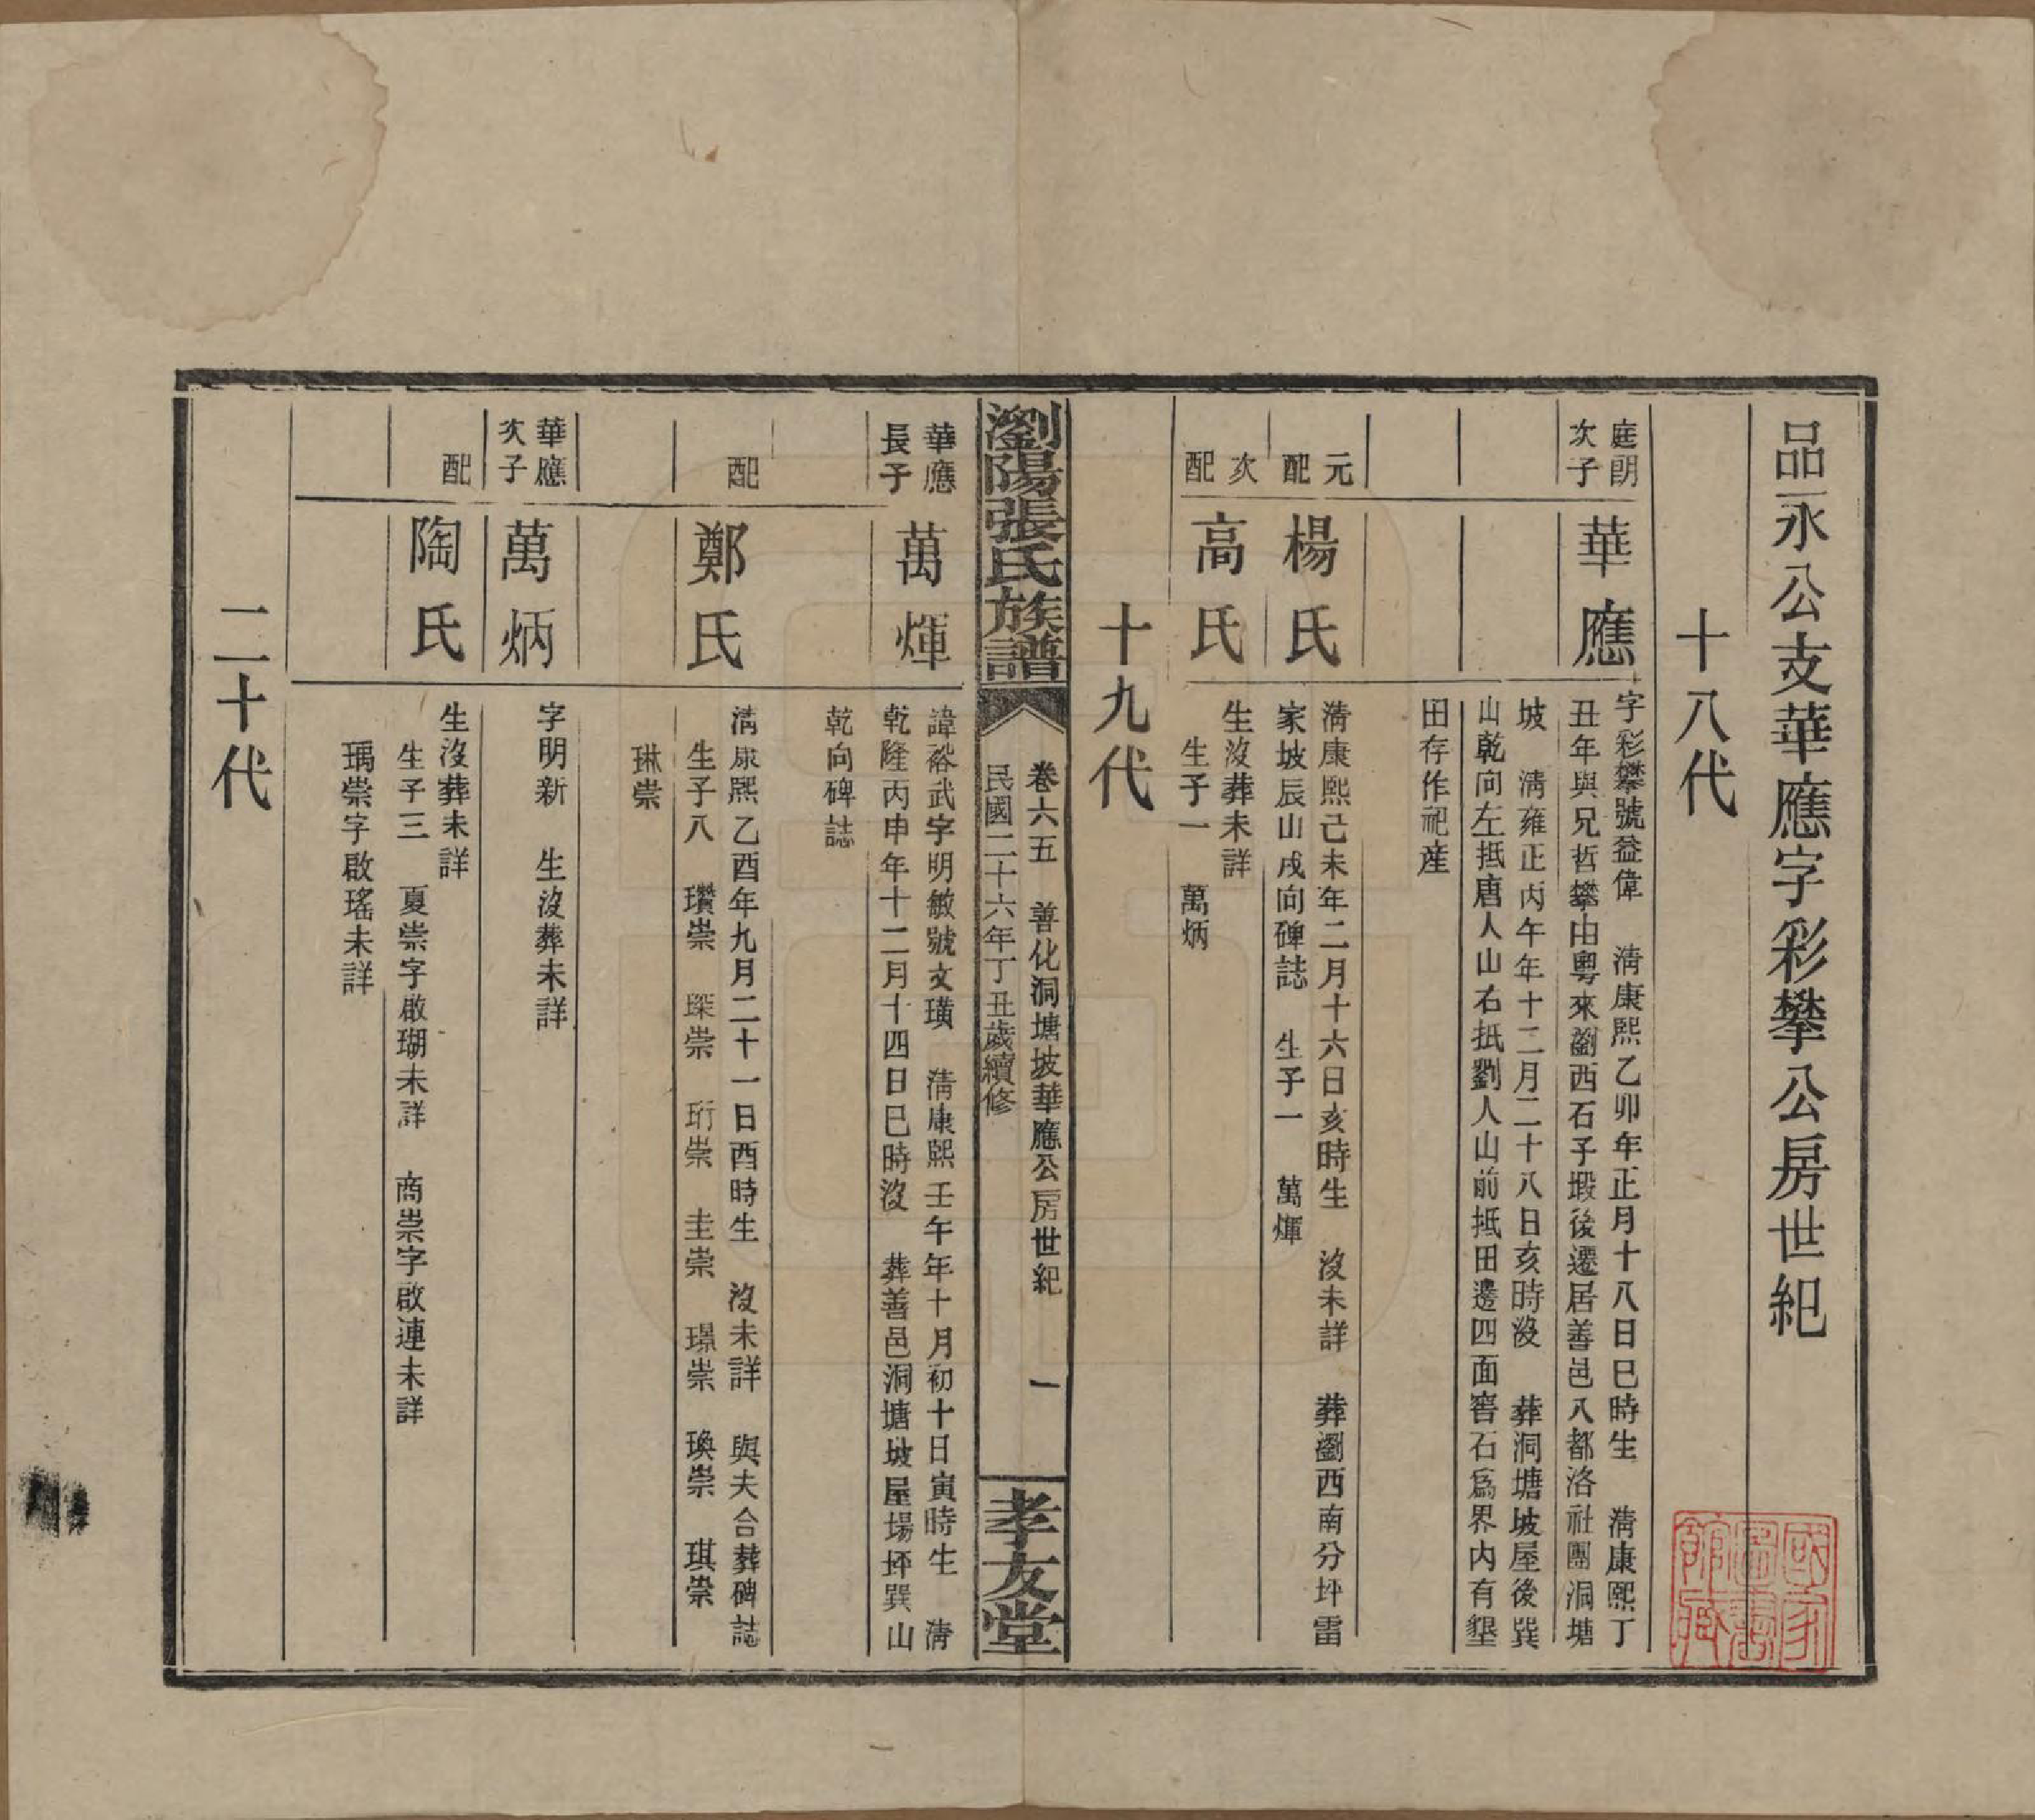 品永公支華應字彩攀公房世紀
十八代
庭朗
次子
華應
字彩攀號益偉　淸康熙乙卯年正月十八日巳時生　淸康熙丁
丑年與兄哲攀由粵來瀏西石子塅後遷居善邑八都洛社團洞塘
坡　淸雍正丙午年十二月二十八日亥時沒　葬洞塘坡屋後巽
山乾向左抵唐人山右抵劉人山前抵田邊四面窖石爲界內有墾
田存作祀産
元
配
楊氏
淸康熙己未年二月十六日亥時生　沒未詳　葬瀏西南分坪雷
家坡辰山戌向碑誌　生子一　萬煇
次
配
高氏
生沒葬未詳
生子一　萬炳
十九代
瀏陽張氏族譜
卷六五　善化洞塘坡華應公房世紀　一
民國二十六年丁丑歲續修
孝友堂
華應
長子
萬煇
諱裕武字明敏號文璜　淸康熙壬午年十月初十日寅時生　淸
乾隆丙申年十二月十四日巳時沒　葬善邑洞塘坡屋場坪巽山
乾向碑誌
配
鄭氏
淸康熙乙酉年九月二十一日酉時生　沒未詳　與夫合葬碑誌
生子八　瓚崇　琛崇　珩崇　圭崇　璟崇　瑍崇　琪崇
琳崇
華應
次子
萬炳
字明新　生沒葬未詳
配
陶氏
生沒葬未詳
生子三　夏崇字啟瑚未詳　商崇字啟連未詳
瑀崇字啟瑤未詳
二十代
國家圖書館藏